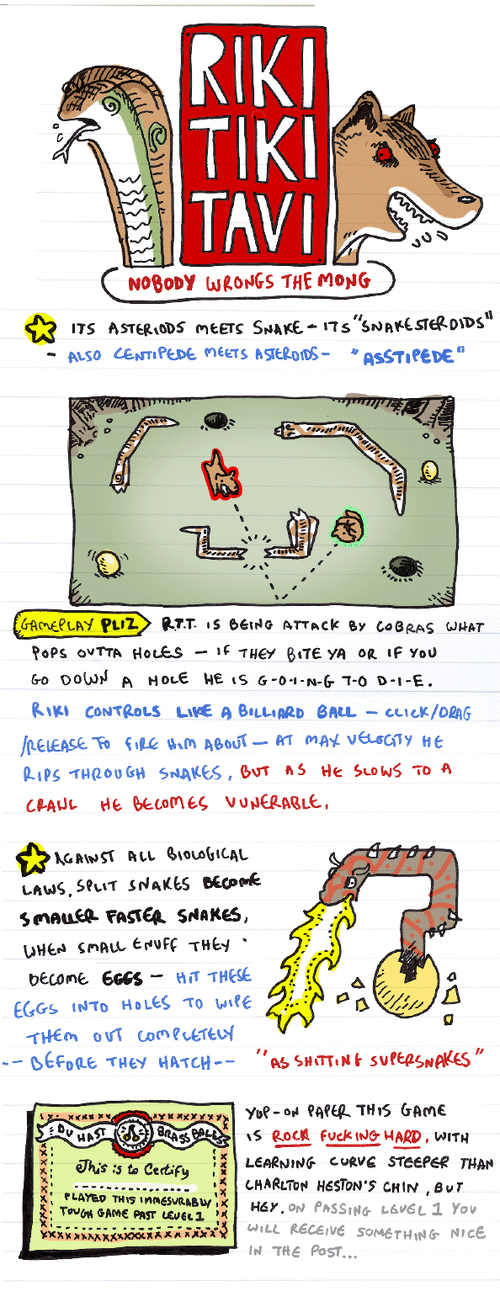 RIKI
TIKI
TAVI
NOBODY WRONGS THE MONG
ITS ASTERIODS MEETS SNAKE - ITS "SNAKESTEROIDS"
- ALSO CENTIPEDE MEETS ASTEROIDS - "ASSTIPEDE"
GAMEPLAY PLIZ R.T.T. IS BEING ATTACK BY COBRAS WHAT
POPS OUTTA HOLES - IF THEY BITE YA OR IF YOU
GO DOWN A HOLE HE IS G-O-I-N-G T-O D-I-E.
RIKI CONTROLS LIKE A BILLIARD BALL - CLICK/DRAG
/RELEASE TO FIRE HIM ABOUT - AT MAX VELOCITY HE
RIPS THROUGH SNAKES, BUT AS HE SLOWS TO A
CRAWL HE BECOMES VUNERABLE.
AGAINST ALL BIOLOGICAL
LAWS, SPLIT SNAKES BECOME
SMALLER FASTER SNAKES,
WHEN SMALL ENUFF THEY
BECOME EGGS - HIT THESE
EGGS INTO HOLES TO WIPE
THEM OUT COMPLETELY
-- BEFORE THEY HATCH --
"AS SHITTING SUPERSNAKES"
DU HAST BRASS BALLS
This is to Certify
PLAYED THIS IMMESURABLY
TOUGH GAME PAST LEVEL 1
YUP - ON PAPER THIS GAME
IS ROCK FUCKING HARD, WITH
LEARNING CURVE STEEPER THAN
CHARLTON HESTON'S CHIN, BUT
HEY. ON PASSING LEVEL 1 YOU
WILL RECEIVE SOMETHING NICE
IN THE POST...